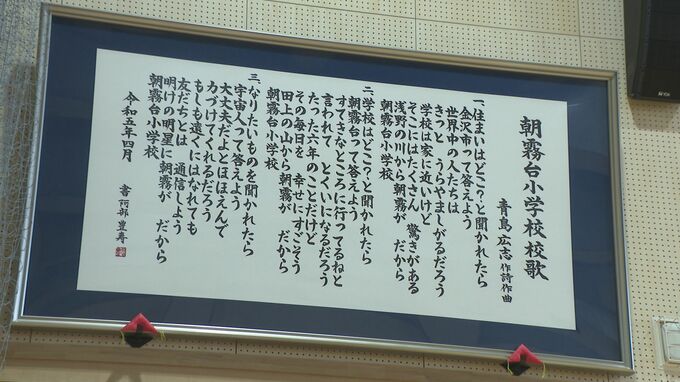 朝霧台小学校校歌
青島 広志 作詩作曲
一、住まいはどこ?と聞かれたら
金沢市って答えよう
世界中の人たちは
きっと うらやましがるだろう
学校は家に近いけど
そこにはたくさん 驚きがある
浅野の川から朝霧が だから
朝霧台小学校
二、学校はどこ?と聞かれたら
朝霧台って答えよう
すてきなところに行ってるねと
言われて とくいになるだろう
たった六年のことだけど
その毎日を 幸せにすごそう
田上の山から朝霧が だから
朝霧台小学校
三、なりたいものを聞かれたら
宇宙人って答えよう
大丈夫だよとほほえんで
力づけてくれるだろう
もしも遠くにはなれても
友だちとは 通信しよう
明けの明星に朝霧が だから
朝霧台小学校
令和五年四月
書 阿部豊寿